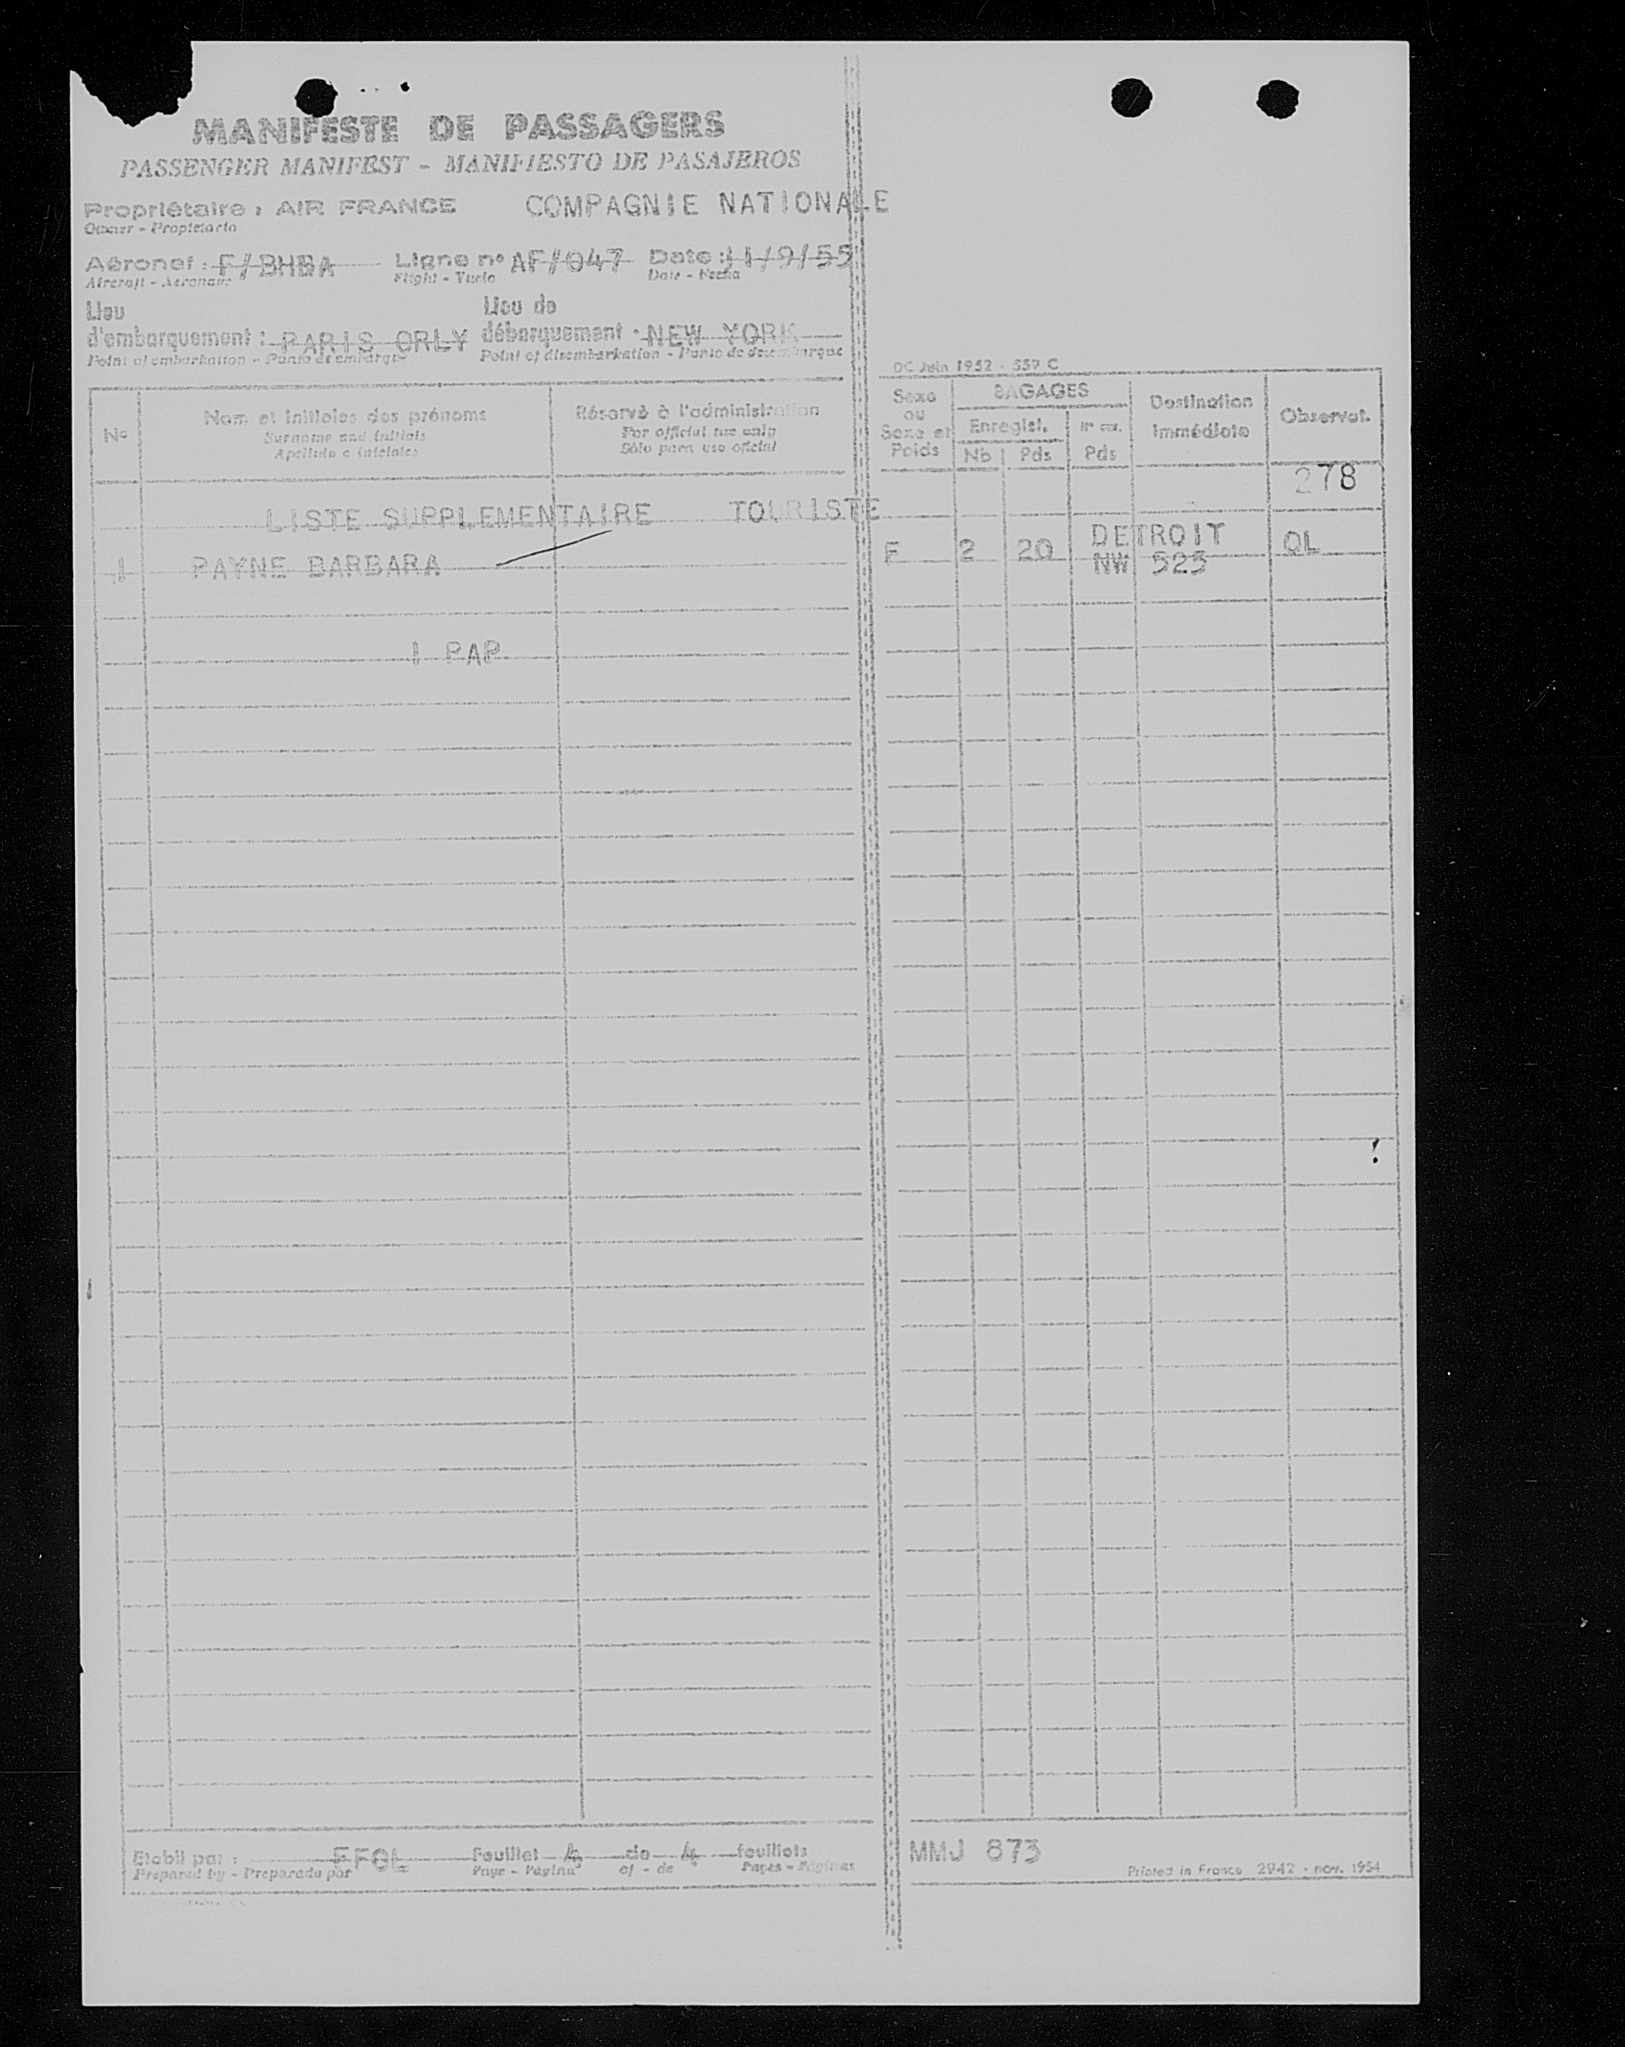 MANIFESTE DE PASSAGERS
PASSENGER MANIFEST - MANIFIESTO DE PASAJEROS
Propriétaire : AIR FRANCE COMPAGNIE NATIONALE
Owner - Propietario
Aéronef : F/BHBA Ligne n° AF/047 Date : 11/9/55
Aircraft - Aeronave Flight - Vuelo Date - Fecha
Lieu Lieu de
d'embarquement : PARIS ORLY débarquement : NEW YORK
Point of embarkation - Punto de embarque Point of disembarkation - Punto de desembarque
DC Juin 1952 - 559 C
N° Nom et initiales des prénoms Réservé à l'administration
Surname and initials For official use only
Apellido e iniciales Sólo para uso oficial
Sexe ou Sexe et Poids BAGAGES Destination immédiate Observat.
Enregist.
Nb Pds Pds
278
LISTE SUPPLEMENTAIRE TOURISTE
1 PAYNE BARBARA F 2 20 DETROIT QL
NW 525
1 PAP
Etabli par : EFOL Feuillet 4 de 4 feuillets MMJ 873
Prepared by - Preparado por Page - Página of - de Pages - Páginas
Printed in France 2942 - nov. 1954